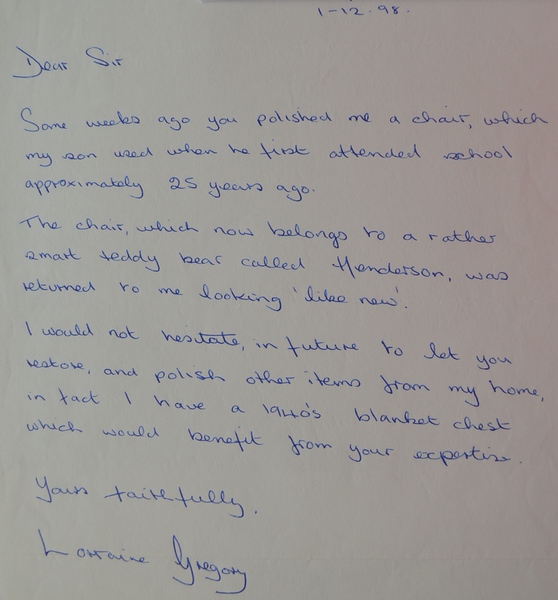 1-12.98.
Dear Sir
Some weeks ago you polished me a chair, which
my son used when he first attended school
approximately 25 years ago.
The chair, which now belongs to a rather
smart teddy bear called Henderson, was
returned to me looking 'like new'.
I would not hesitate, in future to let you
restore, and polish other items from my home,
in fact I have a 1940's blanket chest
which would benefit from your expertise.
Yours faithfully.
Lorraine Gregory